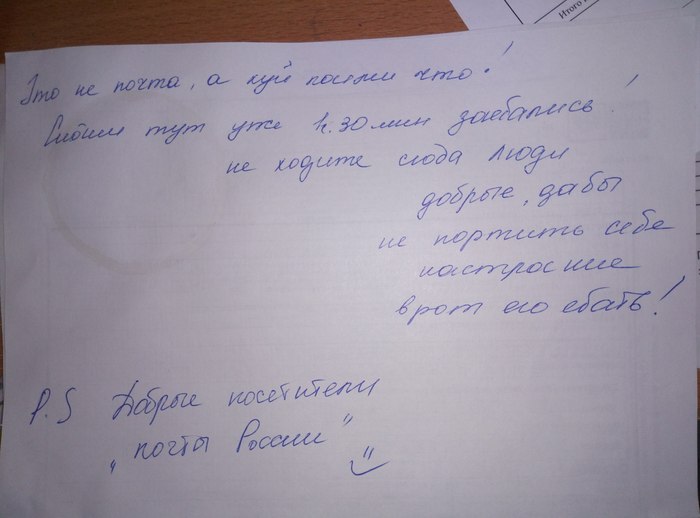 Итого
Это не почта, а хуй пойми что!
Стоим тут уже 1ч.30мин заебались!
не ходите сюда люди
добрые, дабы
не портить себе
настроение
в рот его ебать!
P.S Добрые посетители
"почты России"